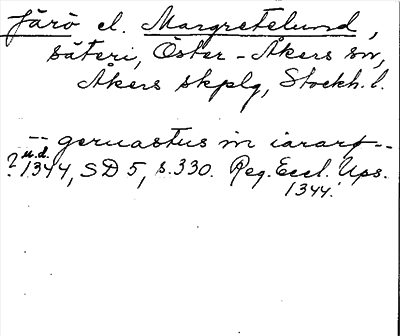 Järö el. Margretelund,
säteri, Öster-Åkers sn,
Åkers skplg, Stockh. l.
-- geruastus in iararf --
? u.d.
1344, SD 5, s. 330. Reg. Eccl. Ups.
1344.